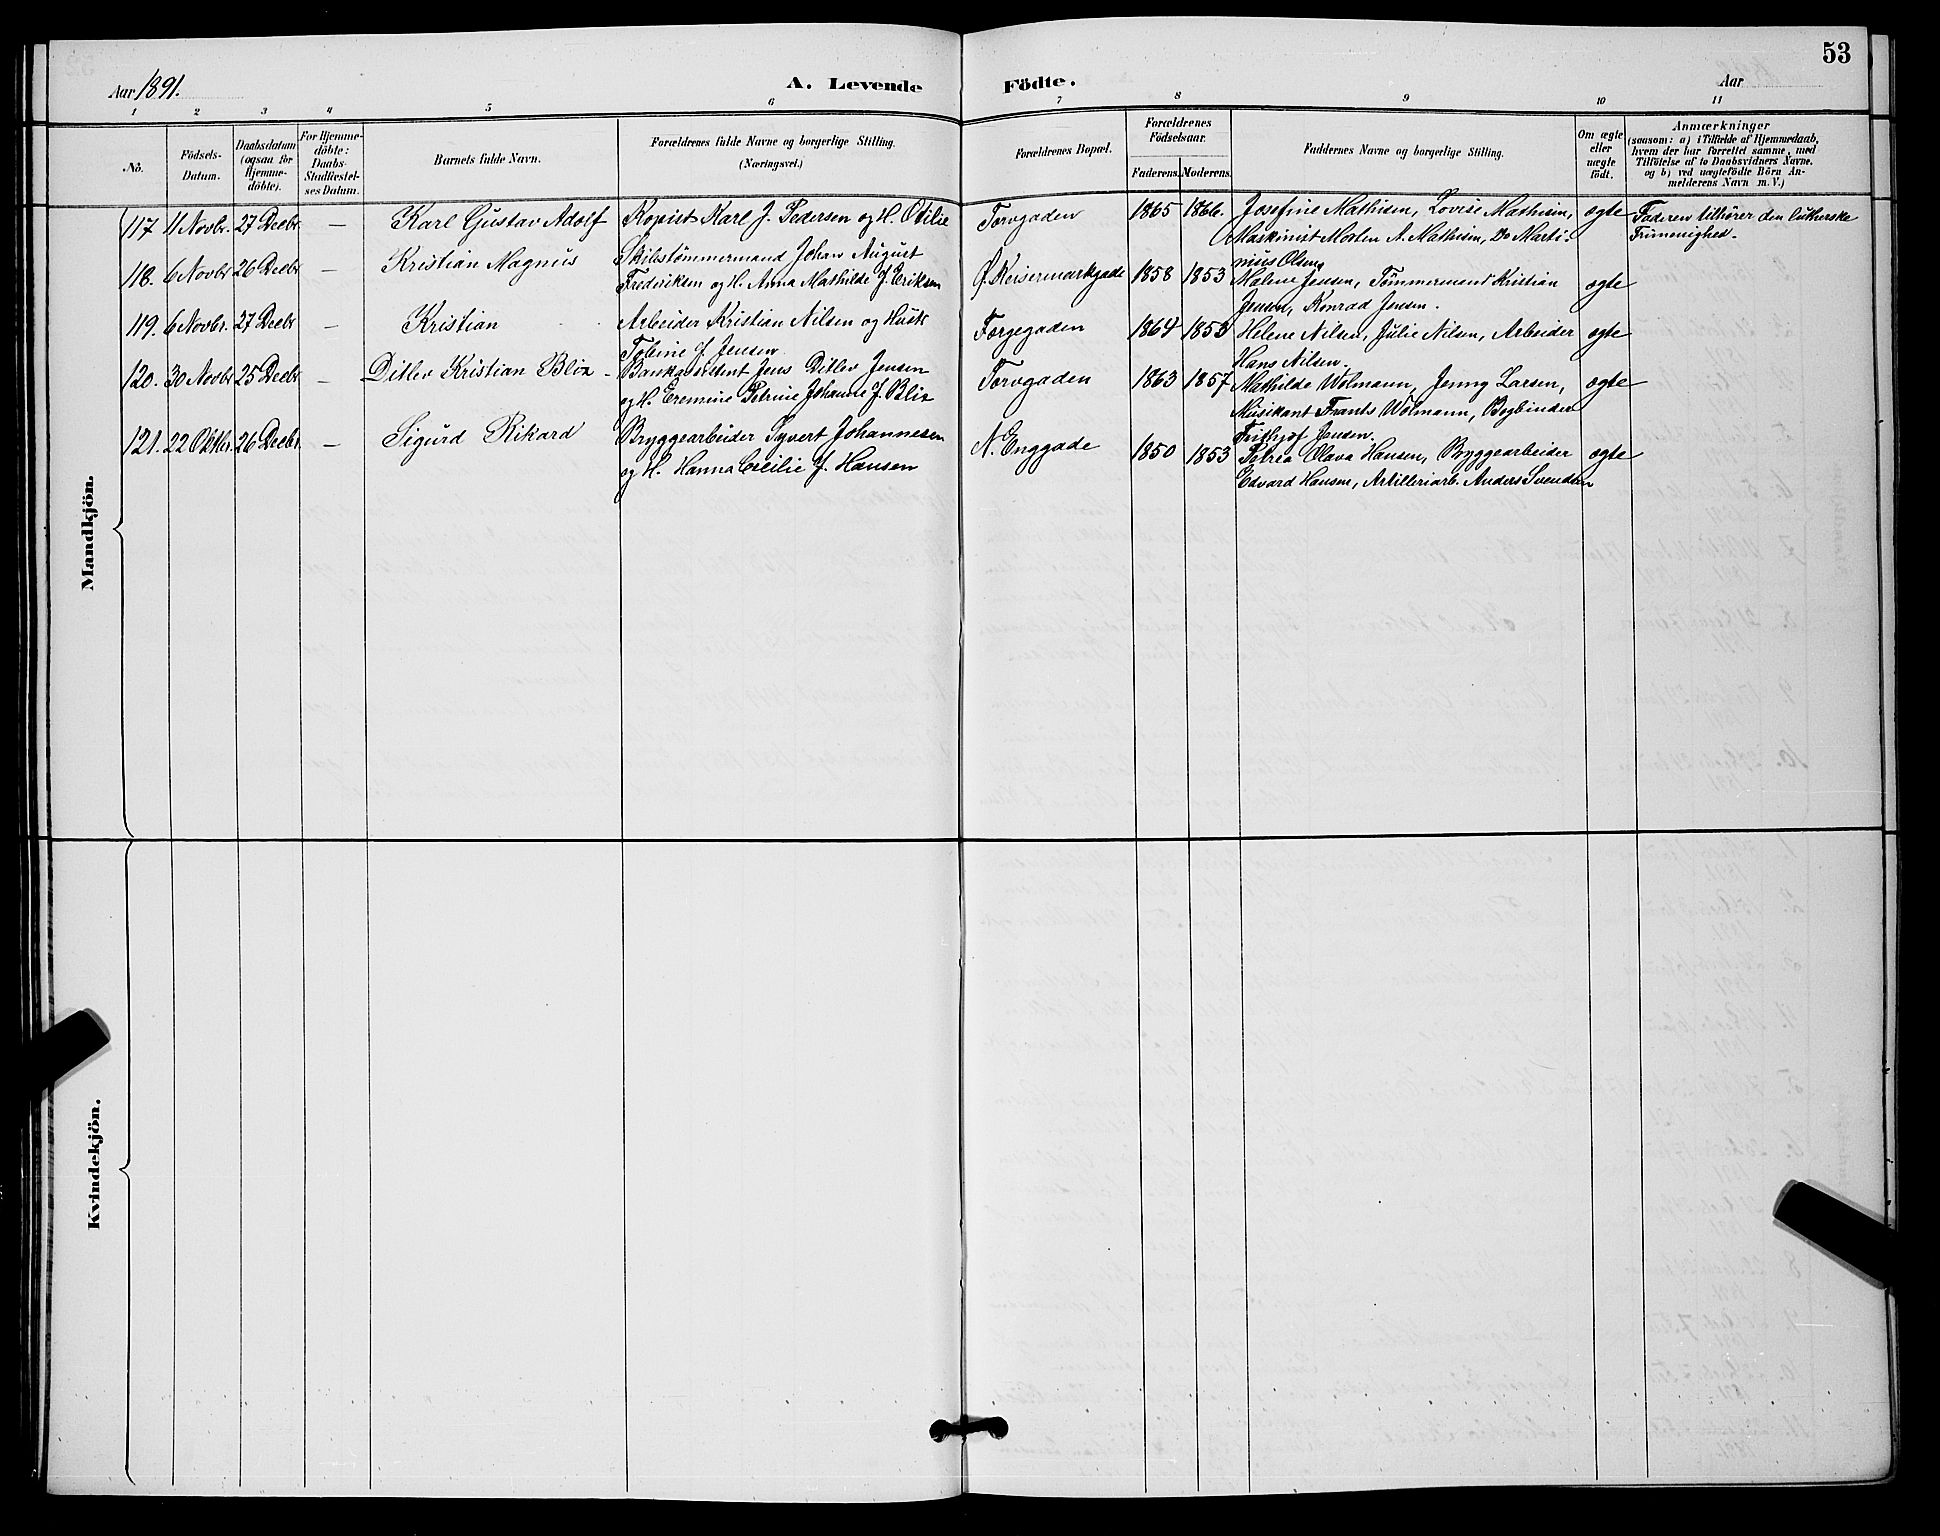 53
Aar 1891.
A. Levende Födte.
Aar
1 2 3 4 5 6 7 8 9 10 11
No.
Födsels-
Datum.
Daabsdatum
(ogsaa for
Hjemme-
döbte).
For Hjemme-
döbte:
Daabs-
Stadfæstel-
ses Datum.
Barnets fulde Navn.
Forældrenes fulde Navne og borgerlige Stilling.
(Næringsvei.)
Forældrenes Bopæl.
Forældrenes
Födselsaar.
Faderens. Moderens.
Faddernes Navne og borgerlige Stilling.
Om ægte
eller
uægte
födt.
Anmærkninger
(saasom: a) i Tilfælde af Hjemmedaab,
hvem der har forrettet samme, med
Tilföielse af to Daabsvidners Navne.
og b) ved uægtefödte Börn An-
melderens Navn m. V.)
Mandkjön.
117 11 Novbr. 27 Decbr — Karl Gustav Adolf Kopist Karl J. Pedersen og H. Otilie Torvgaden 1865 1866. Josefine Mathisen, Lovise Mathisen, ægte Faderen tilhører den lutherske
Maskinist Morten A. Mathisen, Do Marti- Frimenighed.
nius Olsen
118. 6 Novbr 26 Decbr — Kristian Magnus Skibstømmermand Johan August Ø. Keisermarkgade 1858 1853 Malene Jensen, Tømmermend Kristian ægte
Frederiksen og H. Anna Mathilde f. Eriksen Jensen, Konrad Jensen.
119. 6 Novbr. 27 Decbr — Kristian Arbeider Kristian Nilsen og Hustr Torgegaden 1864 1853 Helene Nilsen, Julie Nilsen, Arbeider ægte
Tobine f. Jensen Hans Nilsen.
120. 30 Novbr 25 Decbr — Ditlev Kristian Blix Bankassistent Jens Ditlev Jensen Torvgaden 1863 1857 Mathilde Wolmann, Jenny Larsen, ægte
og H. Eremine Petrine Johanne f. Blix Musikant Frants Wolmann, Bogbinder
Frithjof Jensen.
121. 22 Oktbr. 26 Decbr. — Sigurd Rikard Bryggearbeider Syvert Johannesen N. Enggade 1850 1853 Petrea Olava Hansen, Bryggearbeider ægte
og H. Hanna Cecilie f. Hansen Edvard Hansen, Artilleriarb. Anders Svendsen
Kvindekjön.